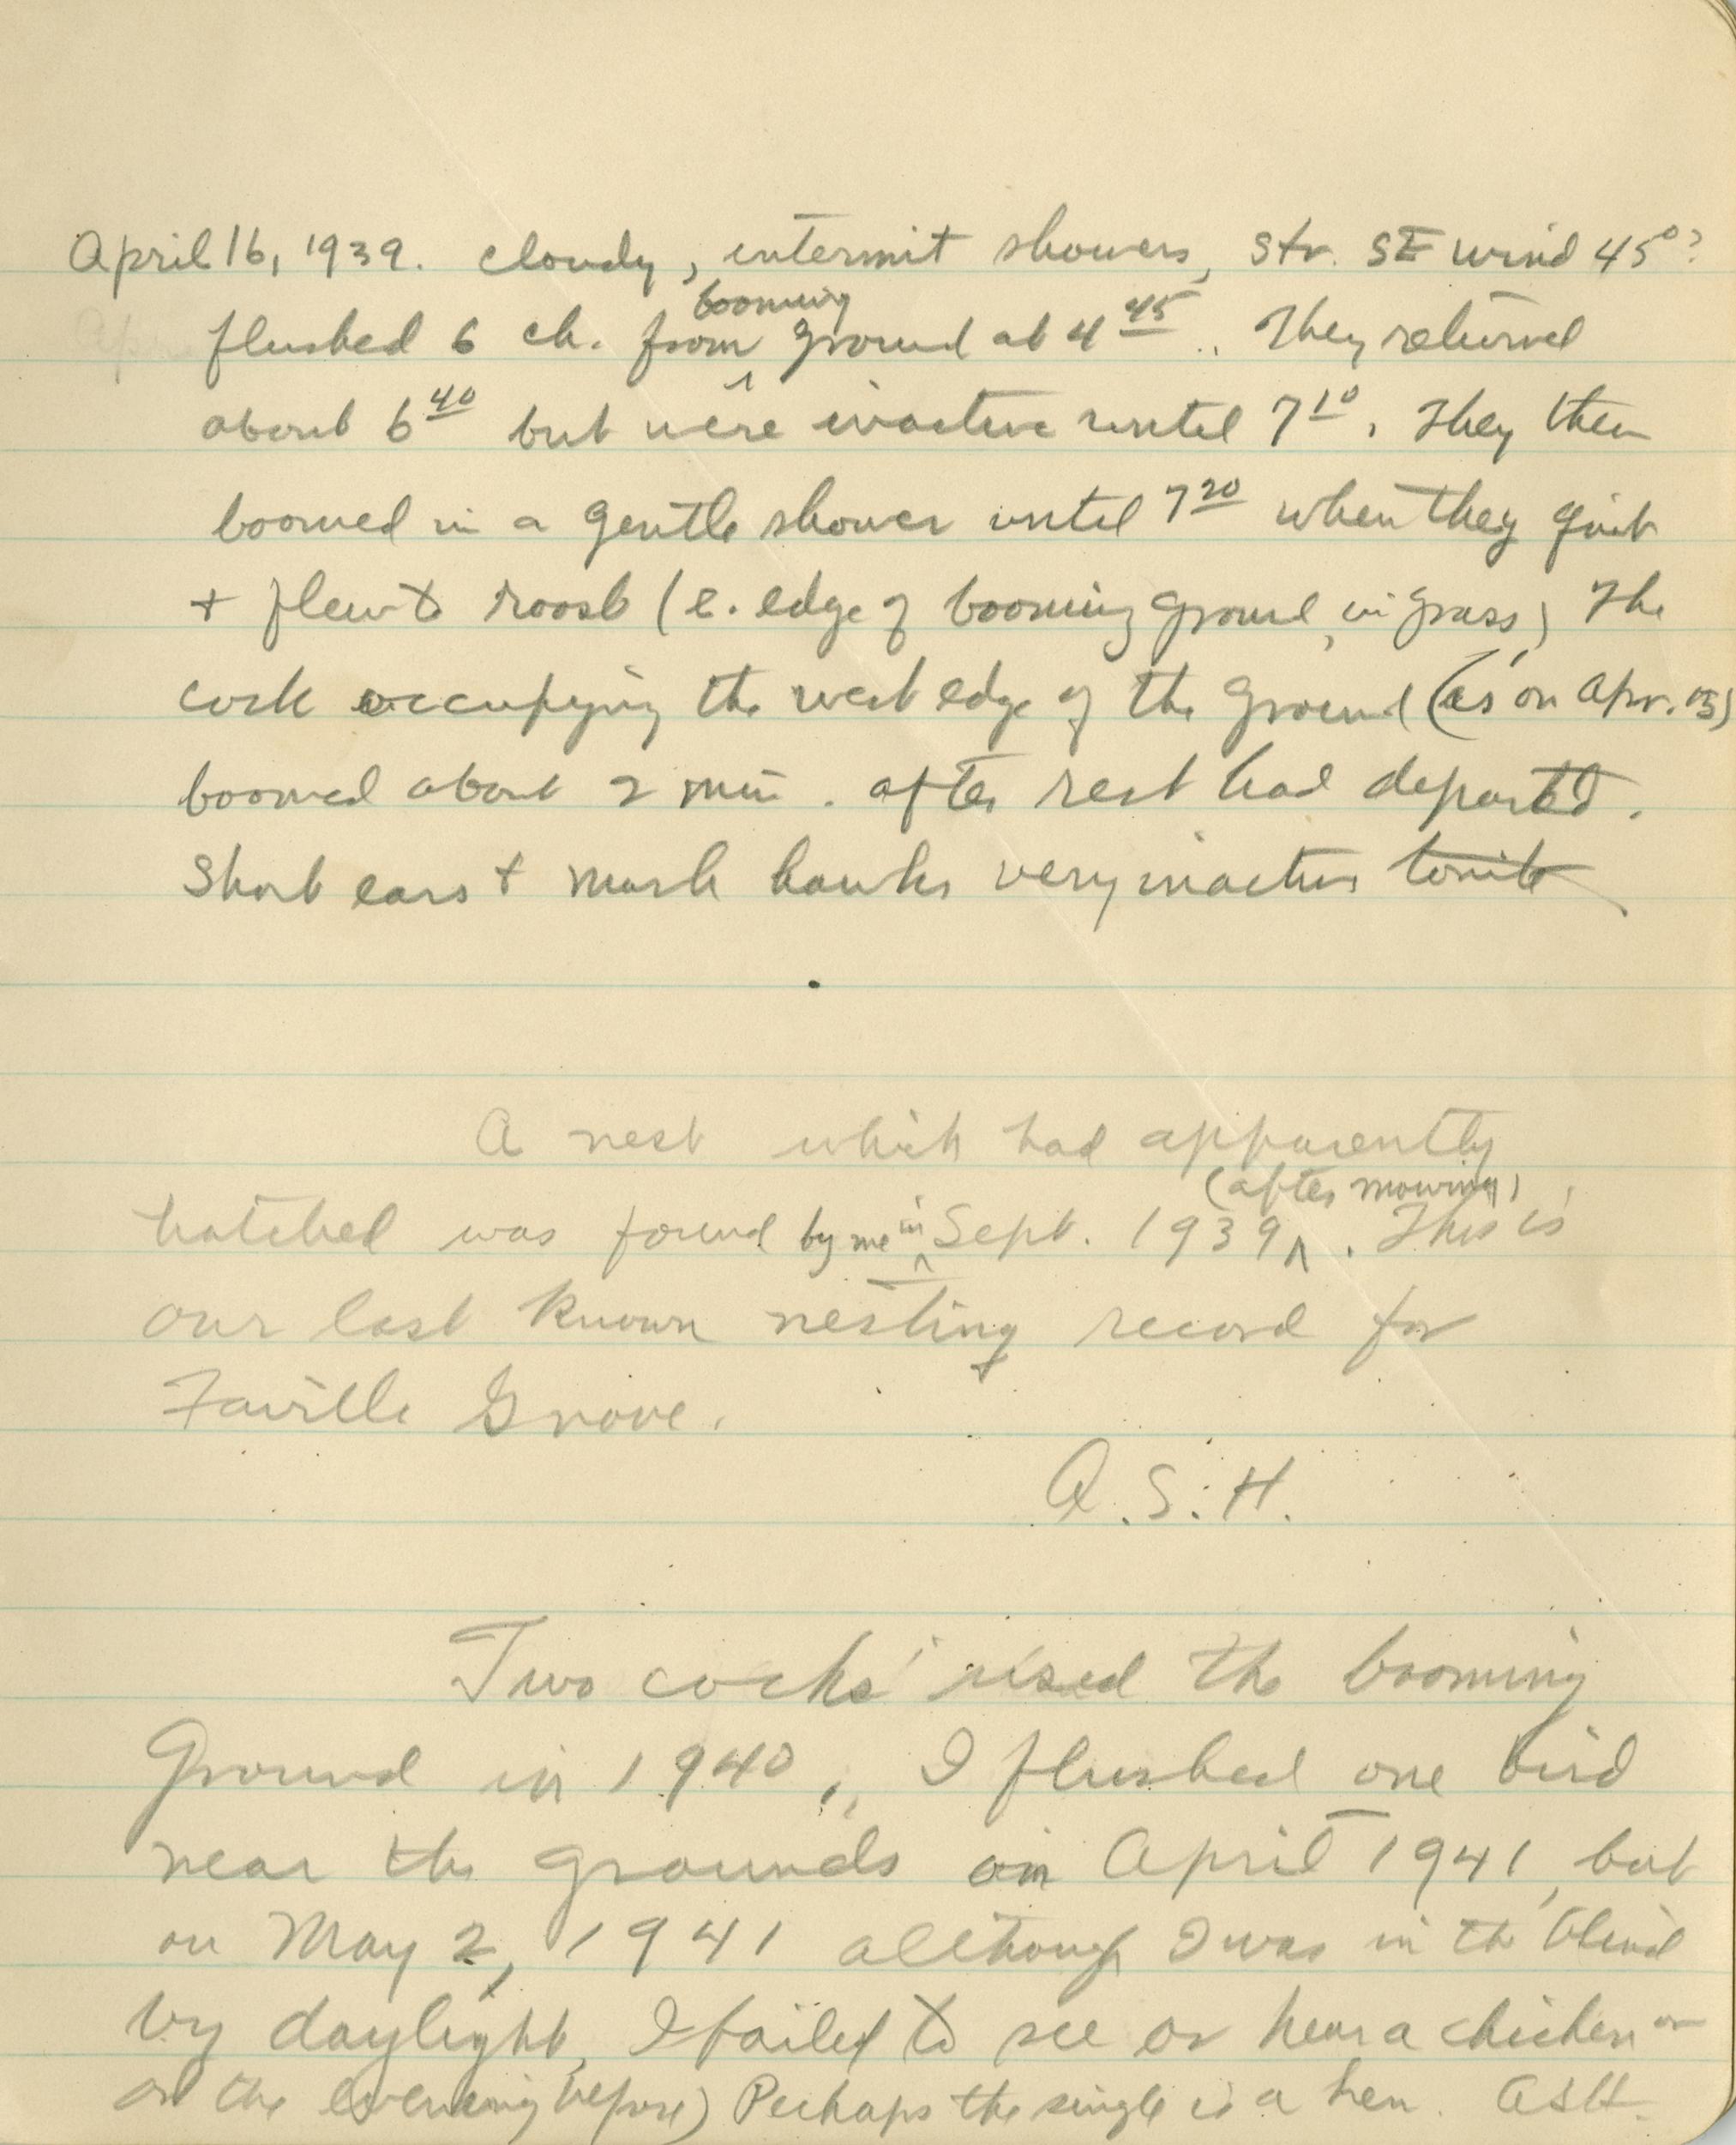 April 16, 1939. cloudy, intermit showers, str. SE wind 45°?
flushed 6 ch. from booming ground at 4 45. They returned
about 6 40 but were inactive until 7 10. They then
boomed in a gentle shower until 7 20 when they quit
+ flew to roost (e. edge of booming ground, in grass) The
cock occupying the west edge of the ground (as on Apr. 15)
boomed about 2 min. after rest had departed.
Short ears + marsh hawks very inactive tonite
A nest which had apparently
hatched was found by me in Sept. 1939 (after mowing). This is
our last known nesting record for
Faville Grove.
A.S.H.
Two cocks used the booming
Ground in 1940, I flushed one bird
near the grounds in April 1941, but
on May 2, 1941 although I was in the blind
by daylight, I failed to see or hear a chicken or
on the evening before) Perhaps the single is a hen. ASH.